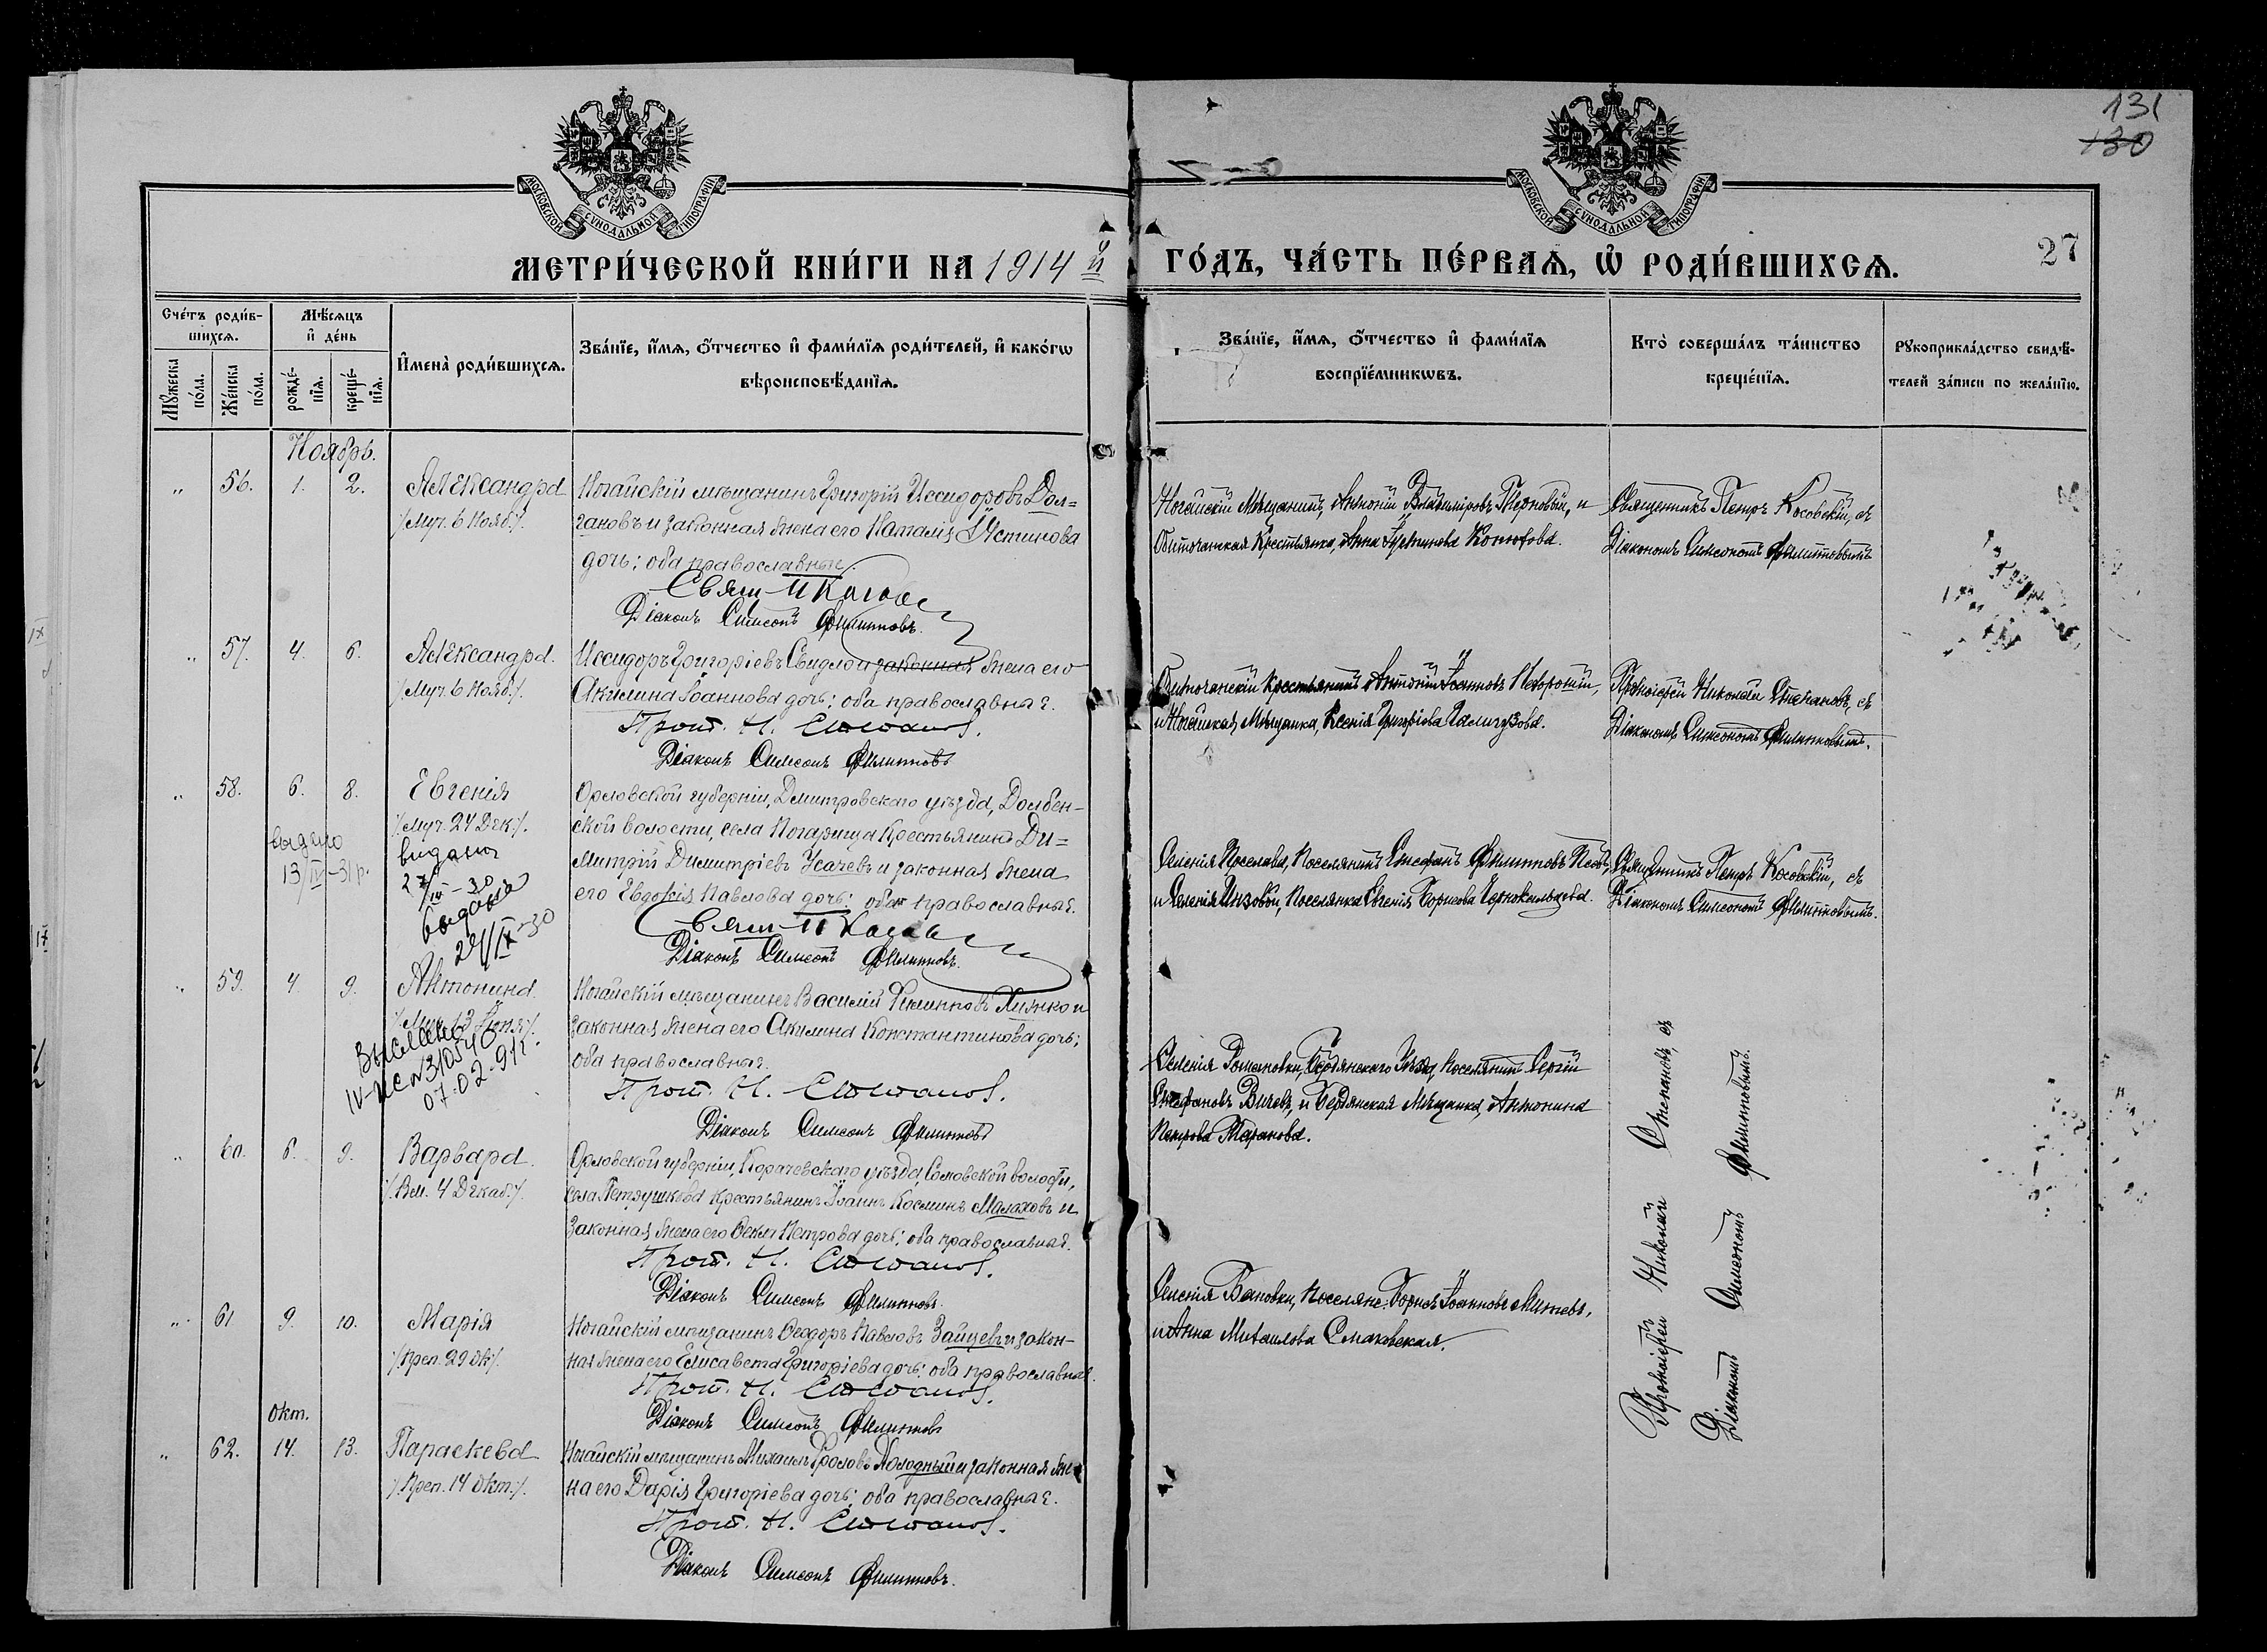 131
130
27
МОСКОВСКОЙ СѴНОДАЛЬНОЙ ТИПОГРАФІИ
МОСКОВСКОЙ СѴНОДАЛЬНОЙ ТИПОГРАФІИ
МЕТРИ́ЧЕСКОЙ КНИ́ГИ НА 1914й
ГО́ДЪ, ЧА́СТЬ ПЕ́РВАѦ, Ѡ РОДИ́ВШИХСѦ.
Сче́тъ роди́в-
шихсѧ.
Мꙋ́жеска по́ла.
Же́нска по́ла.
Мѣ́сѧцъ
и҆ де́нь
рожде́-
нїѧ.
креще́-
нїѧ.
И҆мена̀ роди́вшихсѧ.
Зва́нїе, и҆́мѧ, ѻ҆́тчество и҆ фами́лїѧ роди́телей, и҆ како́гѡ
вѣроисповѣ́данїѧ.
Зва́нїе, и҆́мѧ, ѻ҆́тчество и҆ фами́лїѧ
воспрїе́мникѡвъ.
Кто̀ соверша́лъ та́инство
креще́нїѧ.
Рꙋкоприкла́дство свидѣ́-
телей за́писи по жела́нїю.
Ноябрь.
„ 56. 1. 2. Александра
/Муч. 6 Нояб./.
Ногайскій мѣщанинъ Григорій Иссидоровъ Дол=
гановъ и законная жена его Наталія Іустинова
дочь; оба православные.
Свящ. П Косовс
Діаконъ Симеонъ Филипповъ.
Ногайскій Мѣщанинъ, Антоній Владиміровъ Терновый, и
Обиточанская Крестьянка, Анна Іустинова
Священникъ Петръ Косовскій, съ
Діакономъ Симеономъ Филипповымъ
„ 57. 4. 6. Александра.
/Муч. 6 Нояб./.
Иссидоръ Григоріевъ Свидло и законная жена его
Акилина Іоаннова дочь; оба православные.
Прот. Н. Степанов.
Діаконъ Симеонъ Филипповъ
Обиточанскій Крестьянинъ Антоній Іоанновъ
и Ногайская Мѣщанка, Ксенія Григоріева
Протоіерей Николай Степановъ, съ
Діакономъ Симеономъ Филипповымъ.
„ 58. 6. 8. Евгенія
/Муч. 24 Дек./.
выдано
13/IV-31 р.
видано
27/IV-30
выдана
24/IX-30
Орловской губерніи, Дмитровскаго уѣзда, Долбен-
ской волости, села Погарища Крестьянинъ Ди=
митрій Димитріевъ Усачевъ и законная жена
его Евдокія Павлова дочь; оба православные.
Свящ. П Косовс
Діаконъ Симеонъ Филипповъ.
Селенія Преслава, Поселянинъ Стефанъ Филипповъ
и Селенія Инзовки, Поселянка Евгенія Борисова
Священникъ Петръ Косовскій, съ
Діакономъ Симеономъ Филипповымъ.
„ 59. 4. 9. Антонина.
/Муч. 13 Іюня/.
Выслано
IV-ЖС №310540
07.02.91г.
Ногайскій мѣщанинъ Василій Филипповъ Хижко и
законная жена его Акилина Константинова дочь;
оба православные.
Прот. Н. Степанов.
Діаконъ Симеонъ Филипповъ
Селенія Романовки, Бердянскаго Уѣзда, Поселянинъ Сергій
Стефановъ Вичевъ, и Бердянская Мѣщанка, Антонина
Петрова Таранова.
„ 60. 6. 9. Варвара.
/Вел. 4 Декаб./.
Орловской губерніи, Корачевскаго уѣзда, Сомовской волости,
села Петрушкова крестьянинъ Іоаннъ Косминъ Малаховъ и
законная жена его Ѳекла Петрова дочь; оба православные.
Прот. Н. Степанов.
Діаконъ Симеонъ Филипповъ.
Селенія Бановки, Поселяне: Борисъ Іоанновъ Митевъ,
и Анна Михаилова Смаковская.
Протоіерей Николай Степановъ, съ
Діакономъ Симеономъ Филипповымъ.
„ 61 9. 10. Марія
/Преп. 29 Ок/.
Ногайскій мѣщанинъ Ѳеодоръ Павловъ Зайцевъ и закон-
ная жена его Елисавета Григоріева дочь; оба православные.
Прот. Н. Степанов.
Діаконъ Симеонъ Филипповъ
Окт.
„ 62. 14. 13. Параскева
/Преп. 14 Окт./.
Ногайскій мѣщанинъ Михаилъ Фроловъ Холодный и законная же-
на его Дарія Григоріева дочь; оба православные.
Прот. Н. Степанов.
Діаконъ Симеонъ Филипповъ.